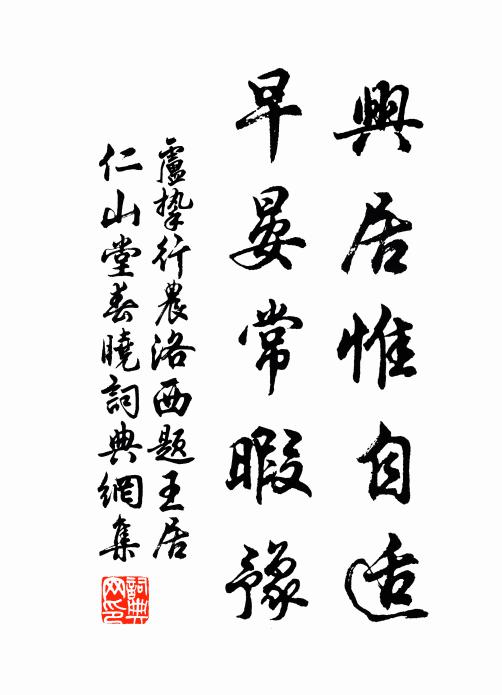 興居惟自適
早晏常暇豫
盧摯行農洛西題王居
仁山堂春曉詞典網集
詞典網印